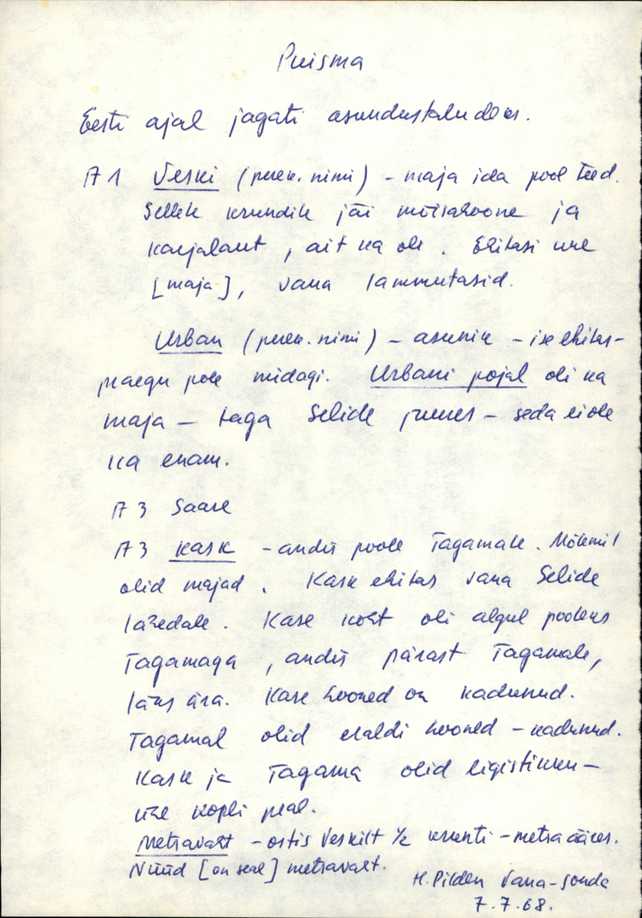 Puisma
Eesti ajal jagati asundustaludeks.
A 1 Veski (perek. nimi) - maja ida pool teed.
Sellele krundile jäi mõisahoone ja
karjalaut, ait ka oli. Ehitasi uue
[maja], vana lammutasid.
Urban (perek. nimi) - asunik - ise ehitas -
praegu pole midagi. Urbani pojal oli ka
maja - taga Selide juures - seda ei ole
ka enam.
A 3 Saare
A 3 Kask - andis poole Tagamale. Mõlemil
olid majad. Kask ehitas vana Selide
lähedale. Kase koht oli algul pooleks
Tagamaga, andis pärast Tagamale,
läks ära. Kase hooned on kadunud.
Tagamal olid eraldi hooned - kadunud.
Kask ja Tagama olid ligistikku -
ühe kopli peal.
Metsavaht - ostis Veskilt 1/2 krunti - metsa ääres.
Nüüd [on seal] metsavaht.
H. Pilden Vana-Sonda
7.7.68.